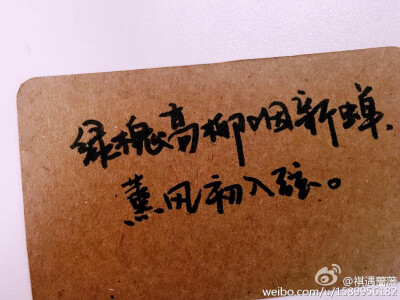 绿槐高柳咽新蝉，
薰风初入弦。
@祺遇蔷薇
weibo.com/u/1589956182